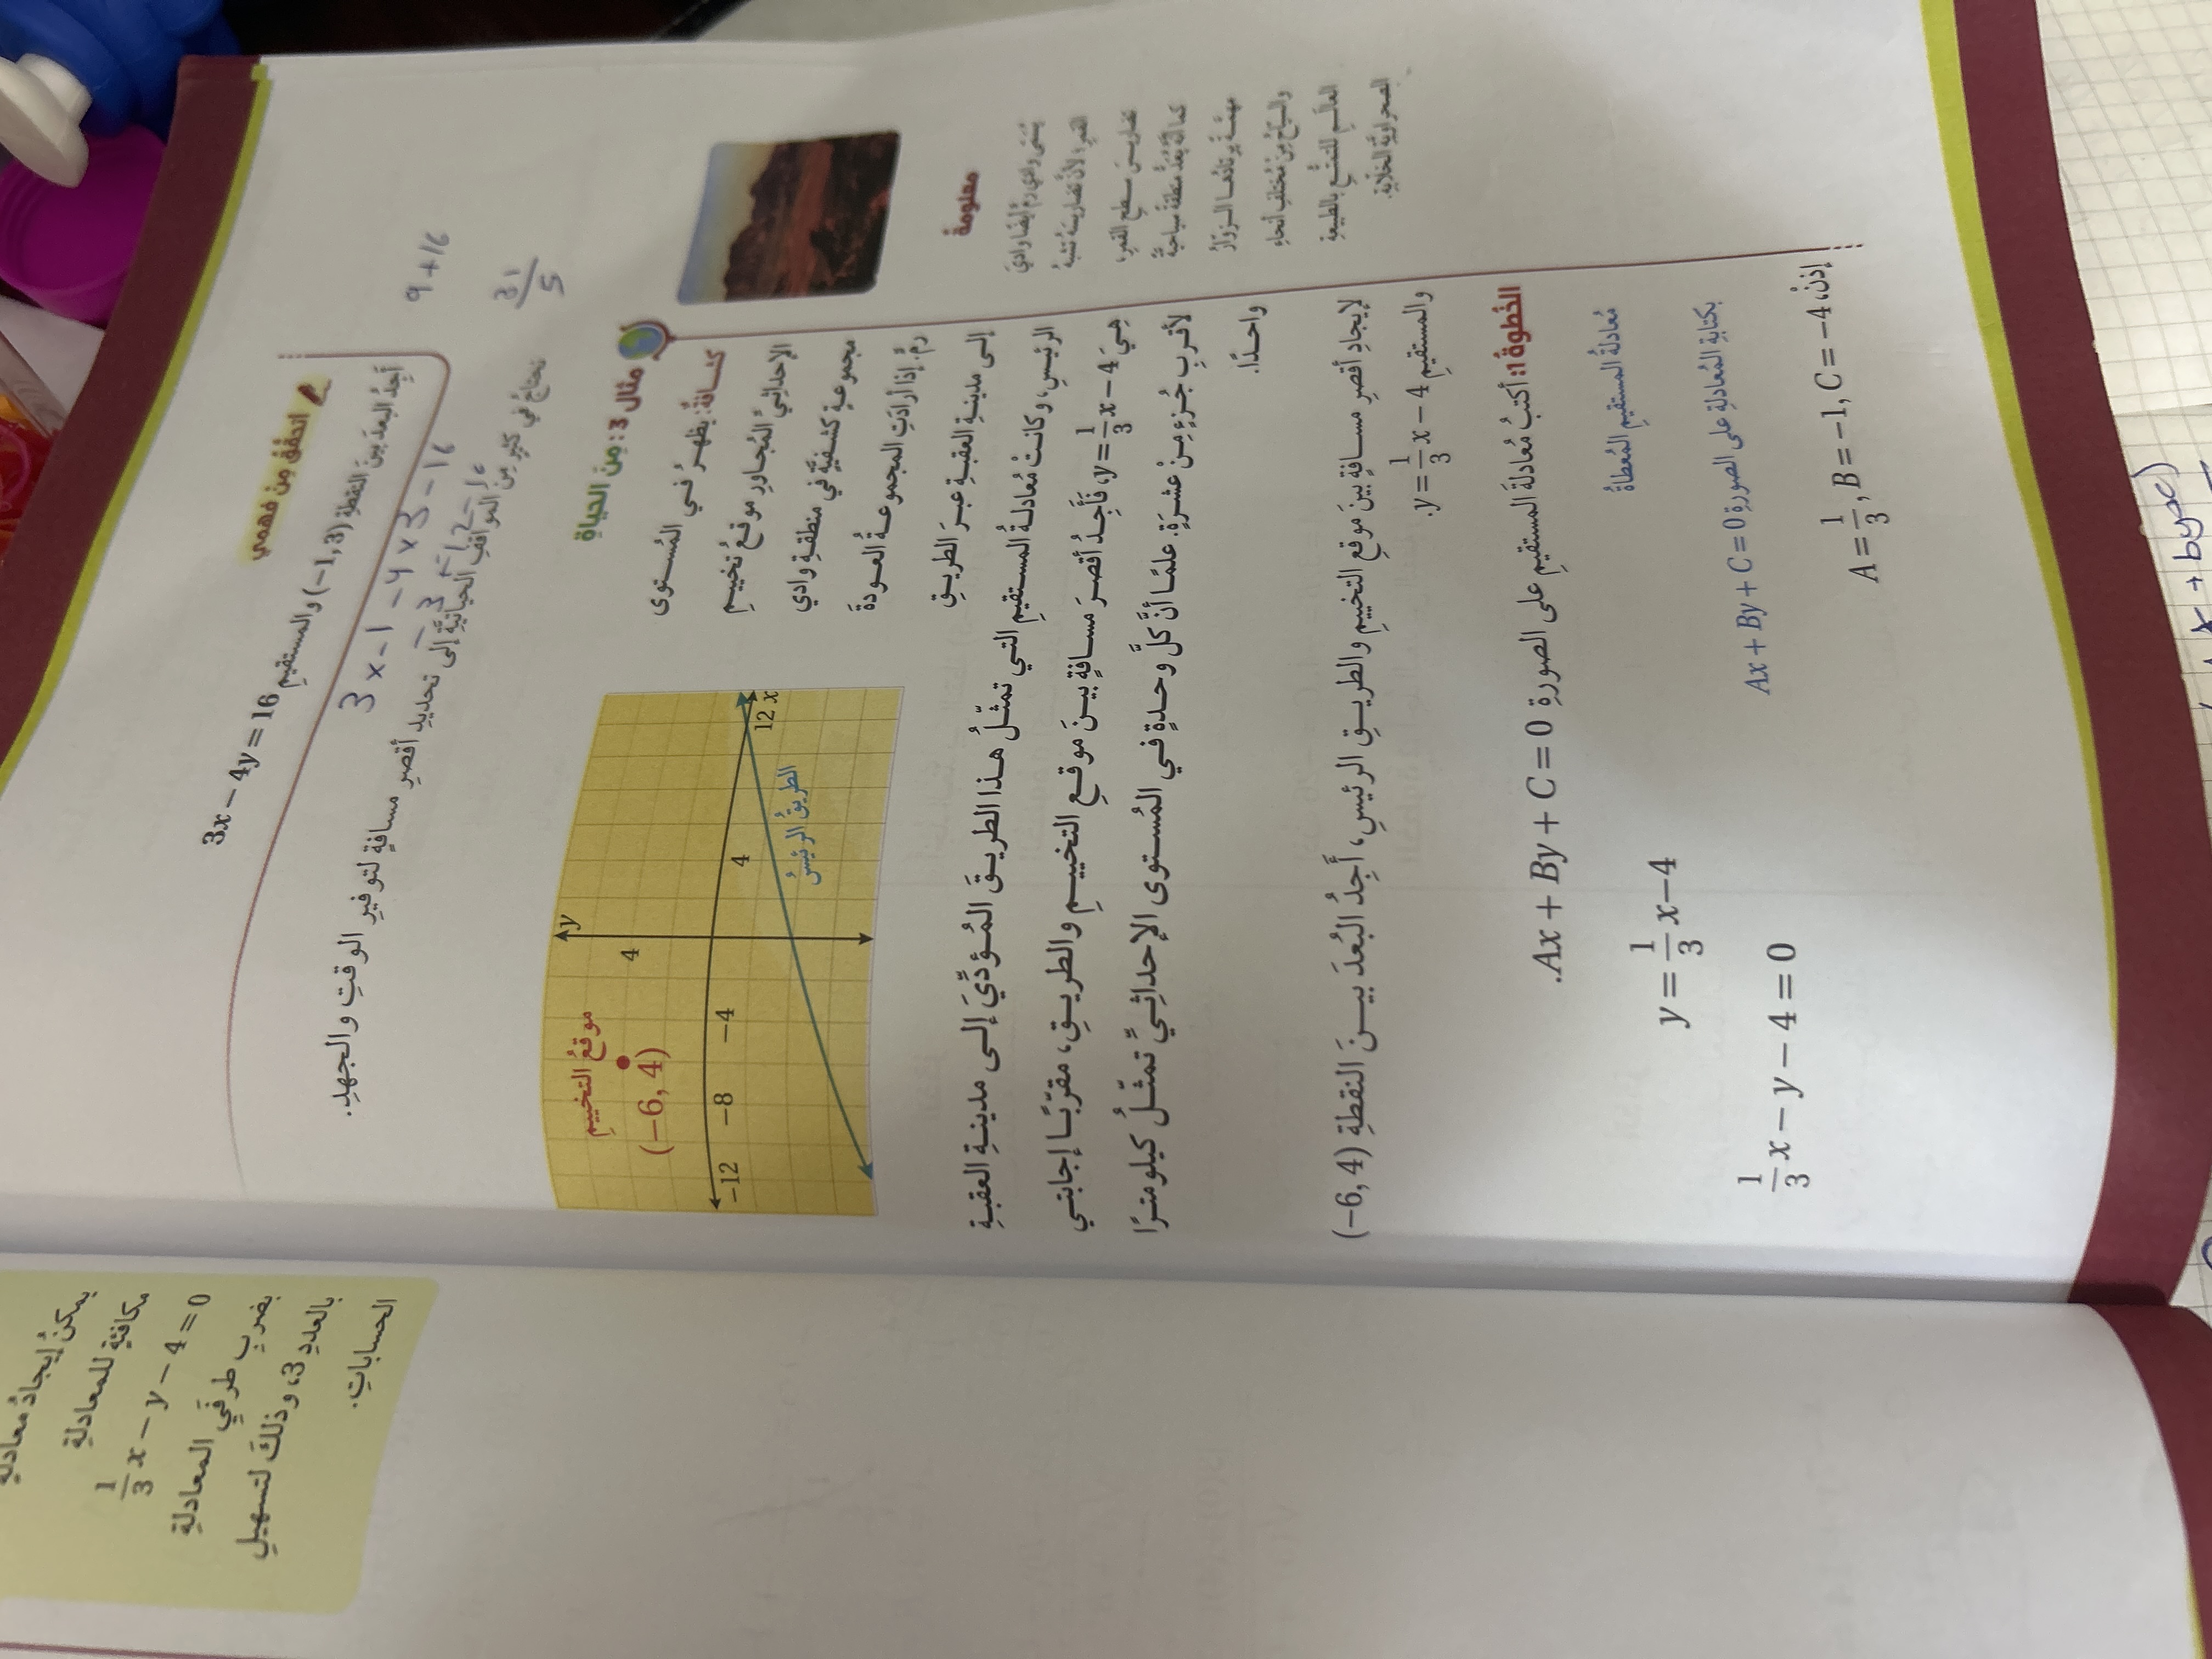 أتحقق من فهمي
أَجِدُ البعدَ بينَ النقطةِ (−1, 3) والمستقيمِ 3x − 4y = 16
3 x -1 - 4 x 3 - 16
9+16
31
5
نحتاجُ في كثيرٍ مِنَ المواقفِ الحياتيَّةِ إلى تحديدِ أقصرِ مسافةٍ لتوفيرِ الوقتِ والجهدِ.
مثال 3: مِنَ الحياةِ
كشافةٌ: يظهرُ في المُستوى
الإحداثيِّ المُجاورِ موقعُ تخييمِ
مجموعةٍ كشفيَّةٍ في منطقةِ وادي
رمٍّ. إذا أرادَتِ المجموعةُ العودةَ
إلى مدينةِ العقبةِ عبرَ الطريقِ
الرئيسِ، وكانتْ مُعادلةُ المستقيمِ التي تمثِّلُ هذا الطريقَ المُؤدِّيَ إلى مدينةِ العقبةِ
هيَ y = 1/3 x − 4، فأَجِدُ أقصرَ مسافةٍ بينَ موقعِ التخييمِ والطريقِ، مقرِّبًا إجابتي
لأقربِ جُزءٍ مِنْ عشرَةٍ. علمًا أنَّ كلَّ وحدةٍ في المُستوى الإحداثيِّ تمثِّلُ كيلومترًا
واحدًا.
y
4
موقعُ التخييمِ
(−6, 4)
−12 −8 −4 4 12 x
الطريقُ الرئيسُ
معلومة
يُسَمّى وادي رمٍّ أيضًا وادي
القمرِ؛ لأنَّ تضاريسَهُ تُشبِهُ
تضاريسَ سطحِ القمرِ،
كما أنَّهُ يُعَدُّ منطقةً سياحيةً
مهمَّةً يرتادُها الزوّارُ
والسيّاحُ مِنْ مُختلفِ أنحاءِ
العالَمِ للتمتُّعِ بالطبيعةِ
الصحراويَّةِ الخلّابةِ.
لإيجادِ أقصرِ مسافةٍ بينَ موقعِ التخييمِ والطريقِ الرئيسِ، أَجِدُ البُعدَ بينَ النقطةِ (−6, 4)
والمستقيمِ y = 1/3 x − 4.
الخطوة 1: أكتبُ مُعادلةَ المستقيمِ على الصورةِ Ax + By + C = 0.
y = 1/3 x−4
مُعادلةُ المستقيمِ المُعطاةُ
1/3 x − y − 4 = 0
بكتابةِ المُعادلةِ على الصورةِ Ax + By + C = 0
إذنْ، A = 1/3, B = −1, C = −4
يمكنُ إيجادُ مُعادلةٍ
مكافئةٍ للمعادلةِ
1/3 x − y − 4 = 0
بضربِ طرفَيِ المعادلةِ
بالعددِ 3، وذلكَ لتسهيلِ
الحساباتِ.